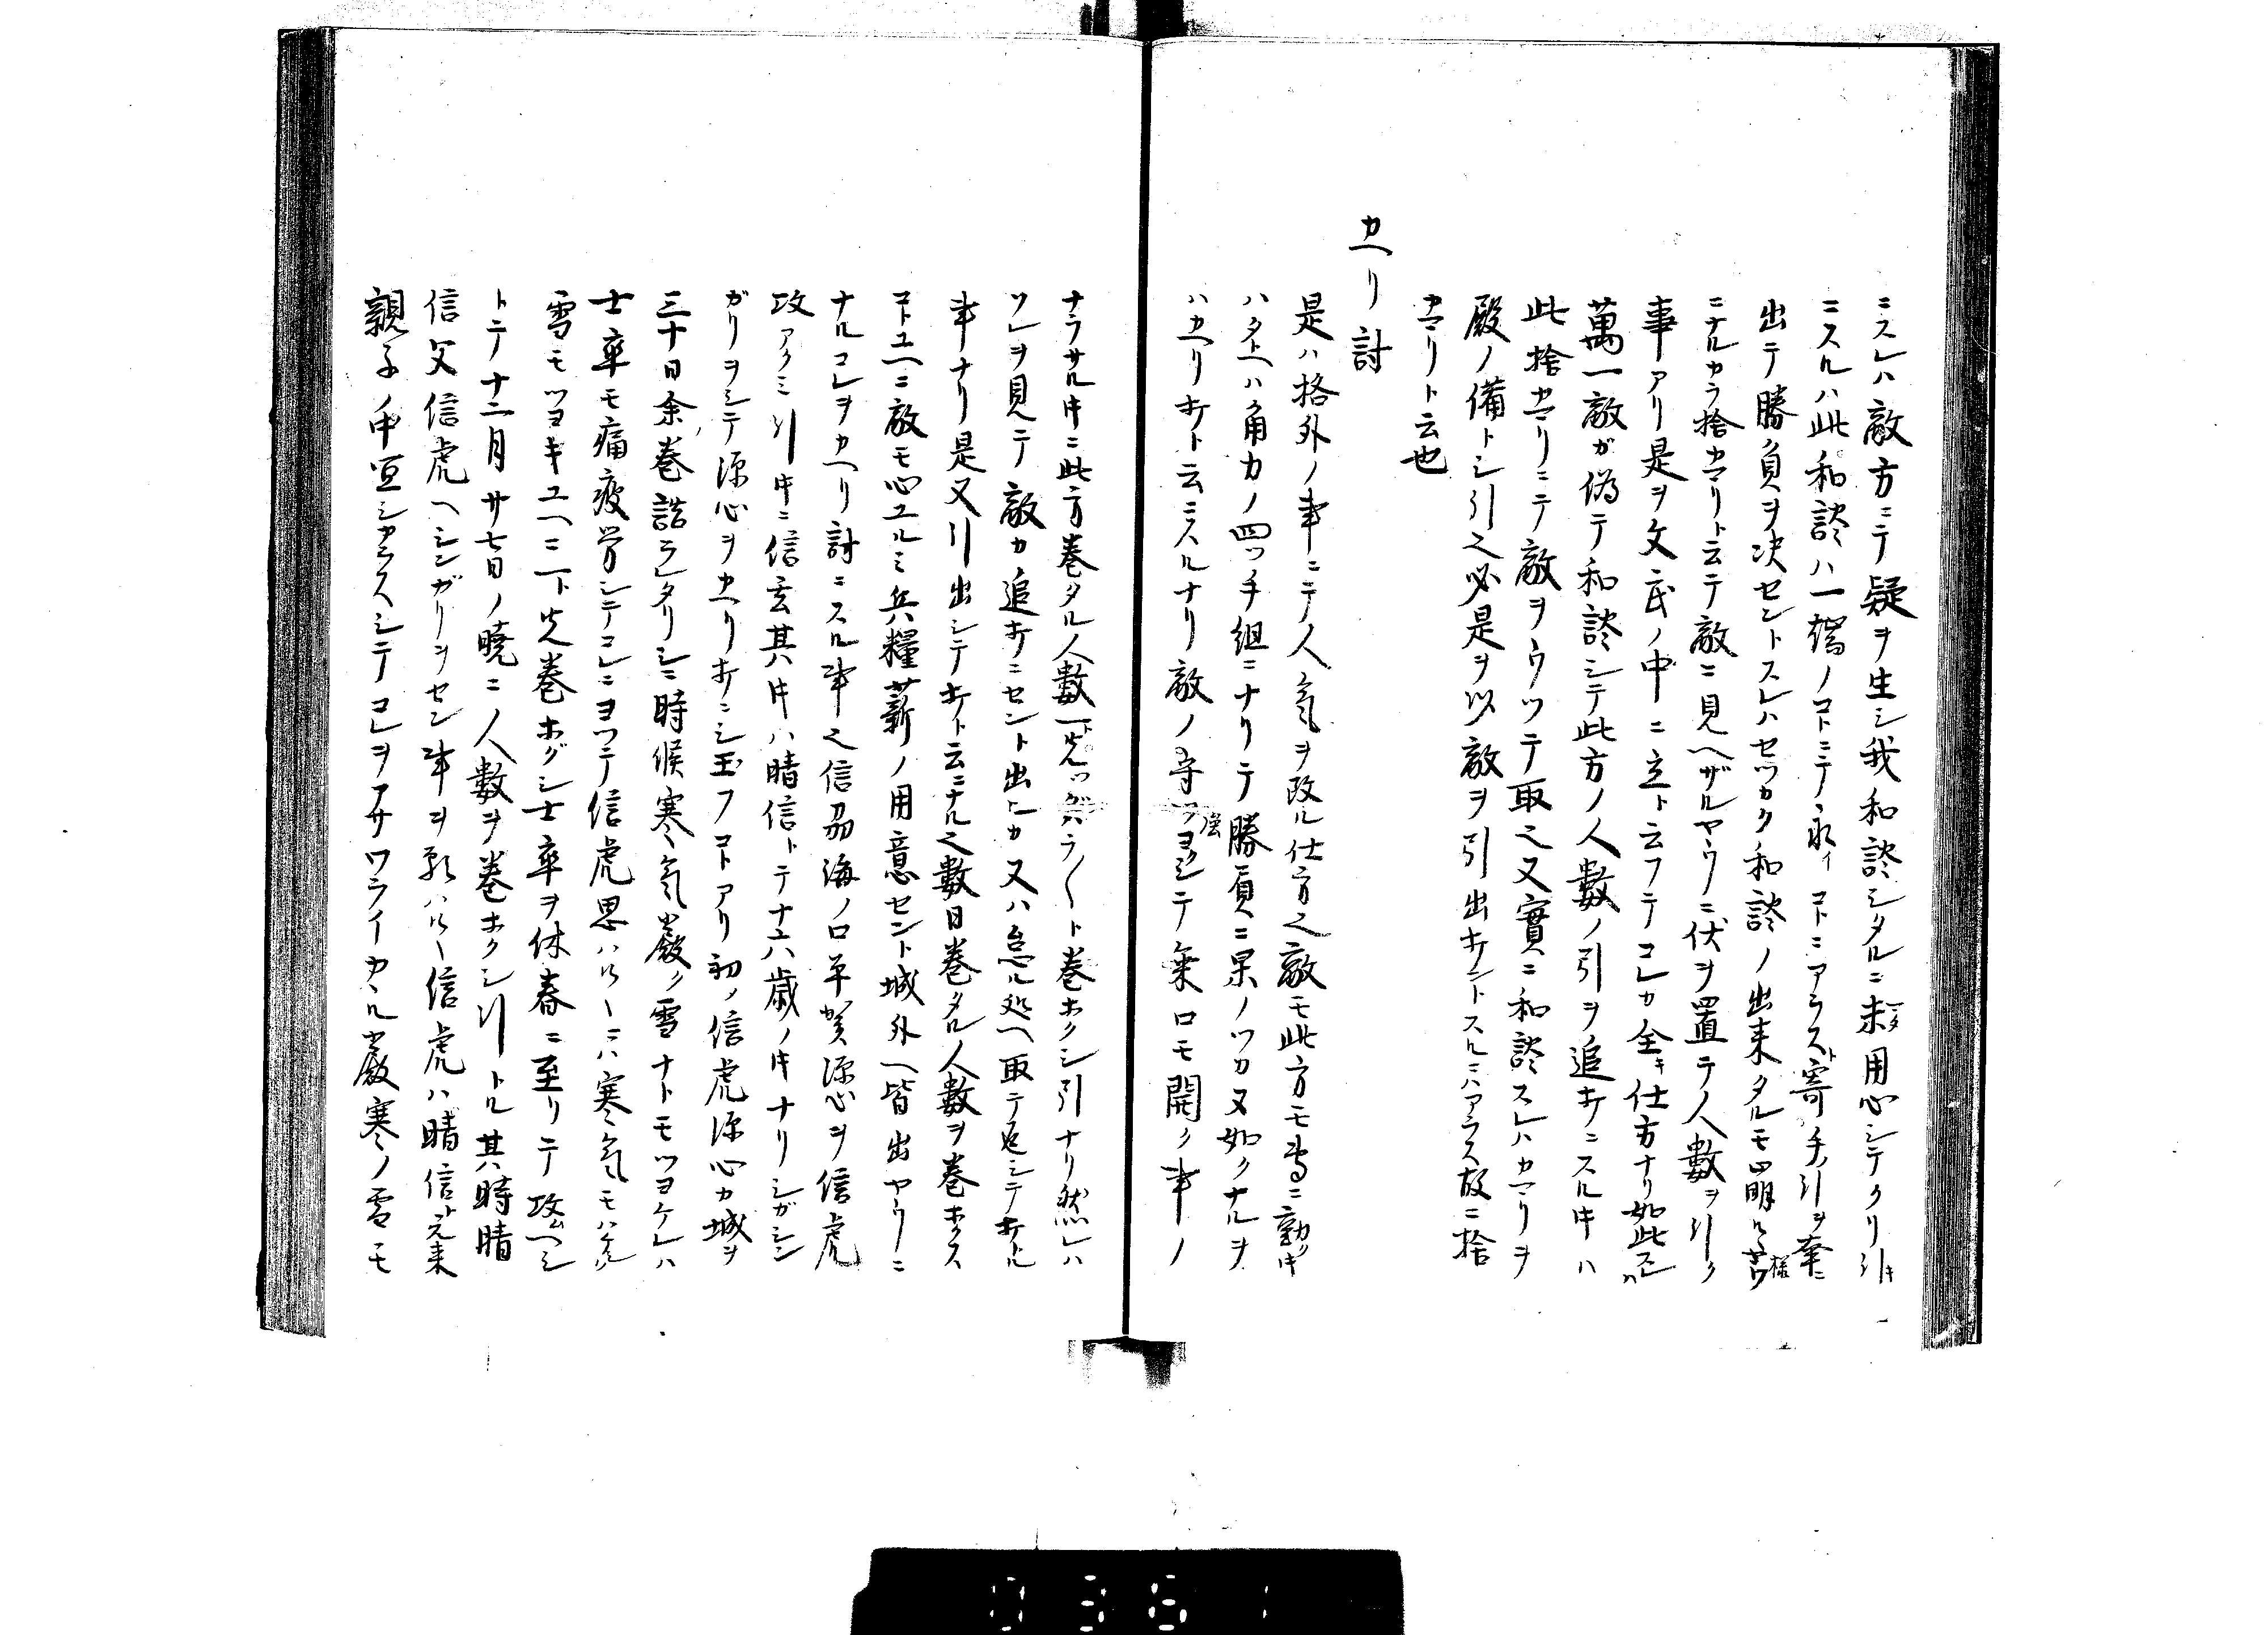 ニスレハ敵方ニテ疑ヲ生シ我和談シタルニ未用心シテクリ引キ
ニスルハ此和談ハ一端ノコトニテ永イコトニアラスト寄手引ヲ幸ニ
出テ勝負ヲ决セントスレハセツカク和談ノ出来タルモ
ニナルカラ捨カマリト云テ敵ニ見ヘザルヤウニ伏ヲ置テ人數ヲ引ク
事アリ是ヲ文武ノ中ニ立ト云フテコレカ全キ仕方ナリ如此スレハ
萬一敵ガ偽テ和談シテ此方ノ人數ノ引ヲ追打ニスル时ハ
此捨カマリニテ敵ヲウツテ取之又實ニ和談スレハカマリヲ
殿ノ備トシ引之必是ヲ以敵ヲ引出打ントスルニハアラス故ニ捨
カマリト云也
カヘリ討
是ハ格外ノ事ニテ人氣ヲ改ル仕方之敵モ此方モ
ハタトヘハ角力ノ四ツ手組ニナリテ勝負ニ果ノツカヌ如クナルヲ
ハカヘリ打ト云ニスルナリ敵ノ守ツヨクシテ乗口モ開ク事ノ
ナラサル时ニ此方巻タル人數一ト先ヅバラ〱ト巻ホクシ引ナリ然レハ
ソレヲ見テ敵カ追打ニセント出ヒカ又ハ怠ル処ヘ取テ返シテ打ヒ
事ナリ是又引出シテ打ト云ニナル之數日巻タル人數ヲ巻ホクス
コトユヘニ敵モ心ユルミ兵糧薪ノ用意セント城外ヘ皆出ヤウニ
ナルコレヲカヘリ討ニスル事之信刕海ノ口平賀源心ヲ信虎
攻アクミ引时ニ信玄其时ハ晴信トテ十六歳ノ时ナリシガシン
ガリヲシテ源心ヲカヘリ打ニシ玉フコトアリ初ノ信虎源心カ城ヲ
三十日余巻詰ラレタリシニ時候寒氣嚴ク雪ナトモツヨケレハ
士卒モ痛疲労シテコレニヨツテ信虎思ハルヽニハ寒氣モハケシ
雪モツヨキユヘニ一ト先巻ホグシ士卒ヲ休春ニ至リテ攻ムヘシ
トテ十二月廿七日ノ曉ニ人數ヲ巻ホクシ引トル其時晴
信父信虎ヘシンガリヲセン事ヲ願ハルヽ信虎ハ晴信ト元来
親子ノ中宜シカラスシテコレヲアサワライカヽル嚴寒ノ雪モ